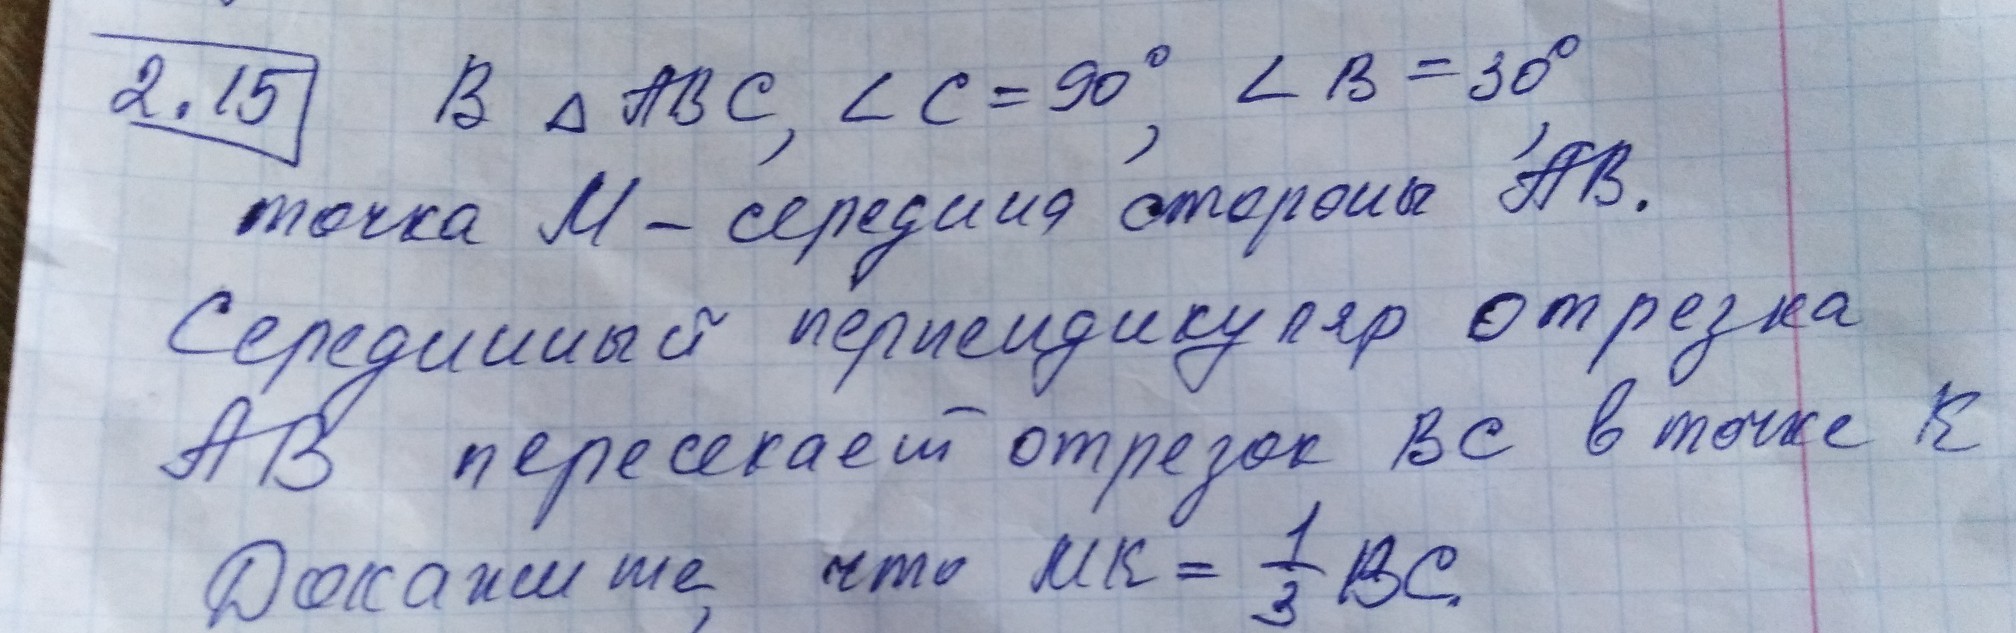 2.15 В △ ABC, ∠ C = 90°, ∠ B = 30°,
точка M - середина стороны AB.
Серединный перпендикуляр отрезка
AB пересекает отрезок BC в точке K
Докажите, что MK = 1/3 BC.